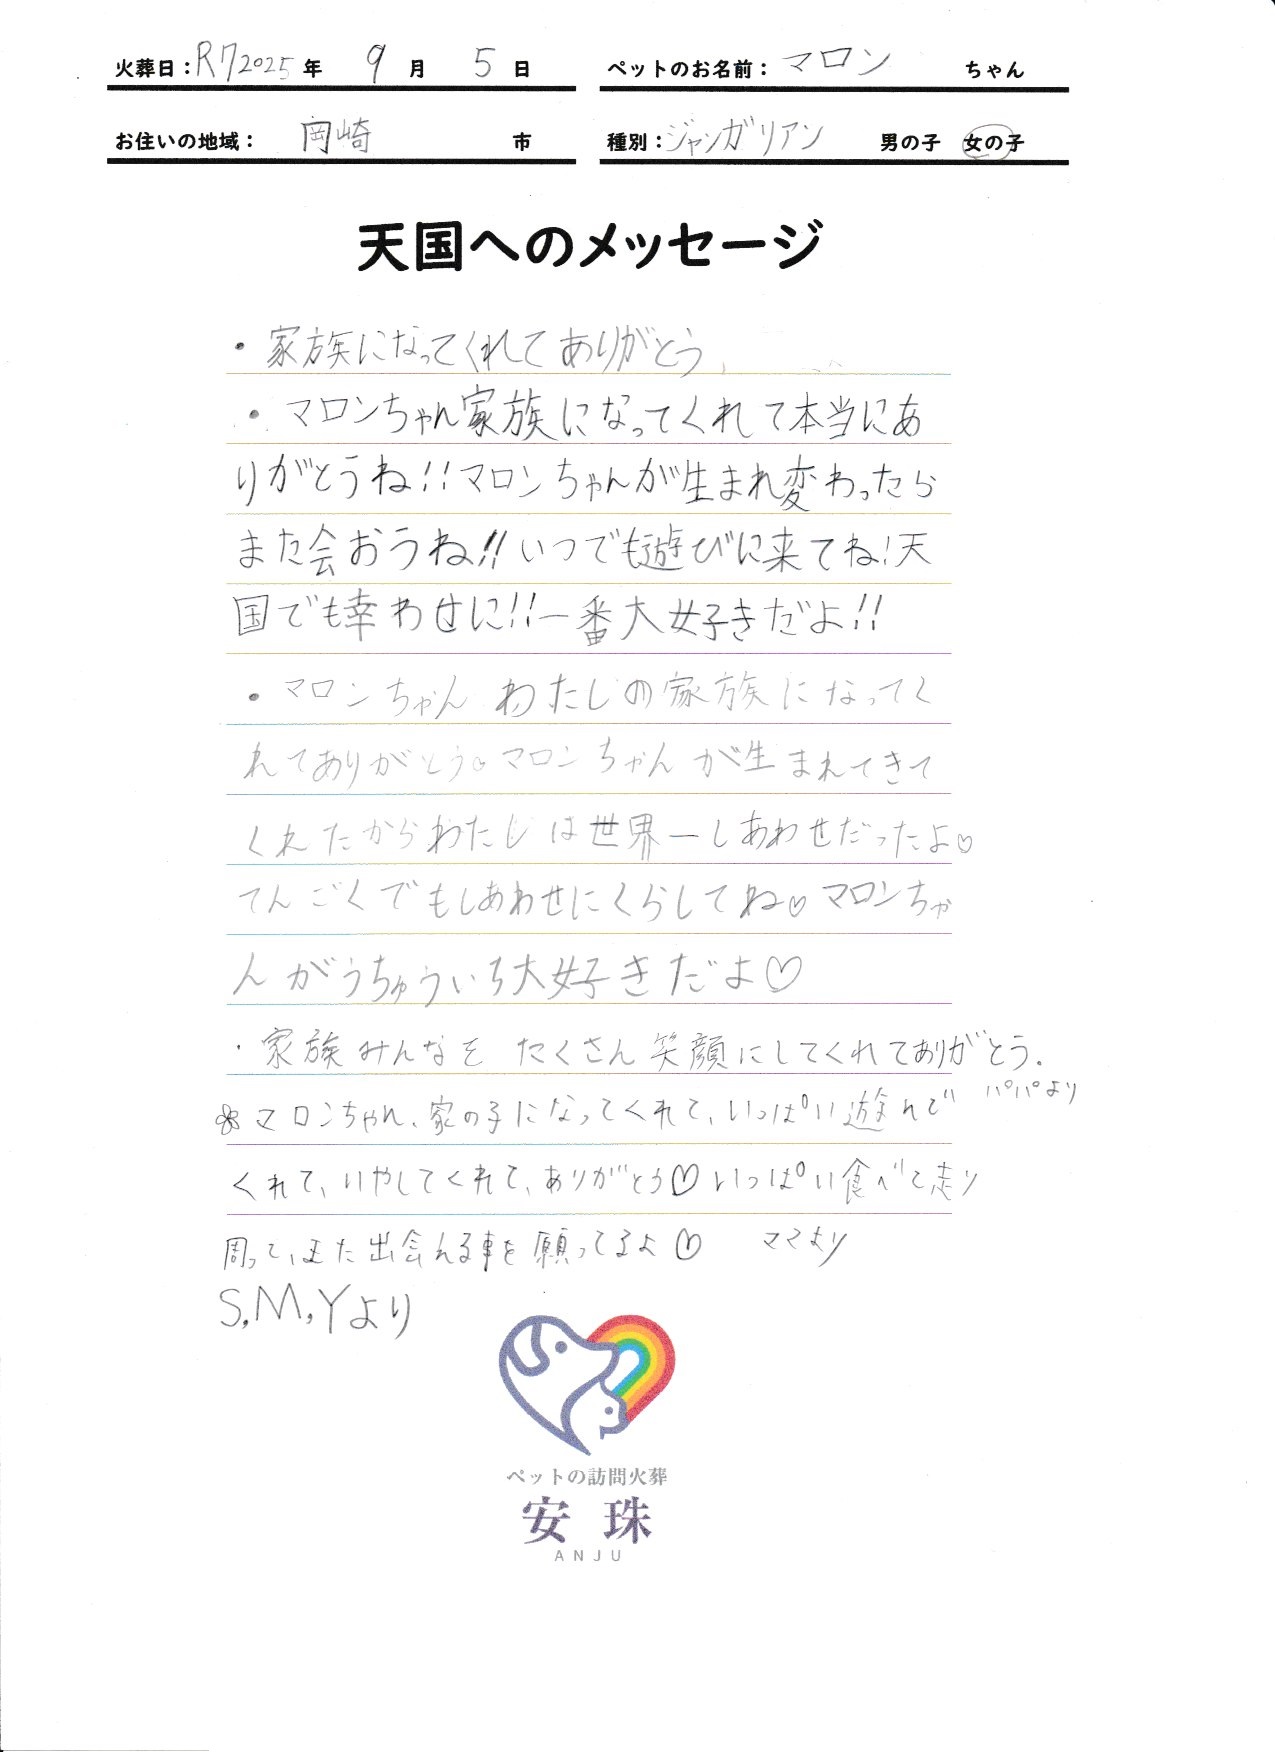 火葬日：R7 2025年 9月 5日 ペットのお名前：マロン ちゃん
お住いの地域： 岡崎 市 種別：ジャンガリアン 男の子 女の子
天国へのメッセージ
・家族になってくれてありがとう
・マロンちゃん家族になってくれて本当にあ
りがとうね!!マロンちゃんが生まれ変わったら
また会おうね!!いつでも遊びに来てね!天
国でも幸わせに!!一番大好きだよ!!
・マロンちゃん わたしの家族になってく
れてありがとう♡マロンちゃんが生まれてきて
くれたからわたしは世界一しあわせだったよ♡
てんごくでもしあわせにくらしてね♡マロンちゃ
んがうちゅういち大好きだよ♡
・家族みんなを たくさん笑顔にしてくれてありがとう.
パパより
マロンちゃん、家の子になってくれて、いっぱい遊んで
くれて、いやしてくれて、ありがとう♡いっぱい食べて走り
周って、また出会える事を願ってるよ♡ ママより
S,M,Yより
ペットの訪問火葬
安珠
ANJU